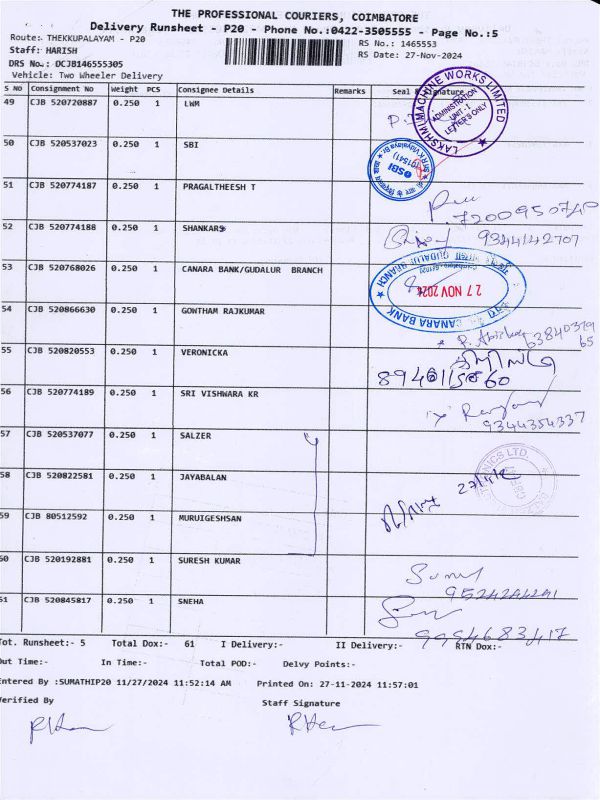 THE PROFESSIONAL COURIERS, COIMBATORE
Delivery Runsheet - P20 - Phone No.:0422-3505555 - Page No.:5
Route:- THEKKUPALAYAM - P20
RS No.: 1465553
Staff: HARISH
RS Date: 27-Nov-2024
DRS No.: DCJB146555305
Vehicle: Two Wheeler Delivery
S NO Consignment No Weight PCS Consignee Details Remarks Seal & Signature
49 CJB 520720887 0.250 1 LWM
LAKSHMI MACHINE WORKS LIMITED
ADMINISTRATION
UNIT-I
LETTERS ONLY
50 CJB 520537023 0.250 1 SBI
SBI
51 CJB 520774187 0.250 1 PRAGALTHEESH T
7200950740
52 CJB 520774188 0.250 1 SHANKARS
9344142707
53 CJB 520768026 0.250 1 CANARA BANK/GUDALUR BRANCH
GUDALUR BRANCH
27 NOV 2024
CANARA BANK
54 CJB 520866630 0.250 1 GOWTHAM RAJKUMAR
55 CJB 520820553 0.250 1 VERONICKA
56 CJB 520774189 0.250 1 SRI VISHWARA KR
9344354337
57 CJB 520537077 0.250 1 SALZER
58 CJB 520822581 0.250 1 JAYABALAN
59 CJB 80512592 0.250 1 MURUIGESHSAN
60 CJB 520192881 0.250 1 SURESH KUMAR
61 CJB 520845817 0.250 1 SNEHA
9994683417
Tot. Runsheet:- 5 Total Dox:- 61 I Delivery:- II Delivery:- RTN Dox:-
Out Time:- In Time:- Total POD:- Delvy Points:-
Entered By :SUMATHIP20 11/27/2024 11:52:14 AM Printed On: 27-11-2024 11:57:01
Verified By Staff Signature